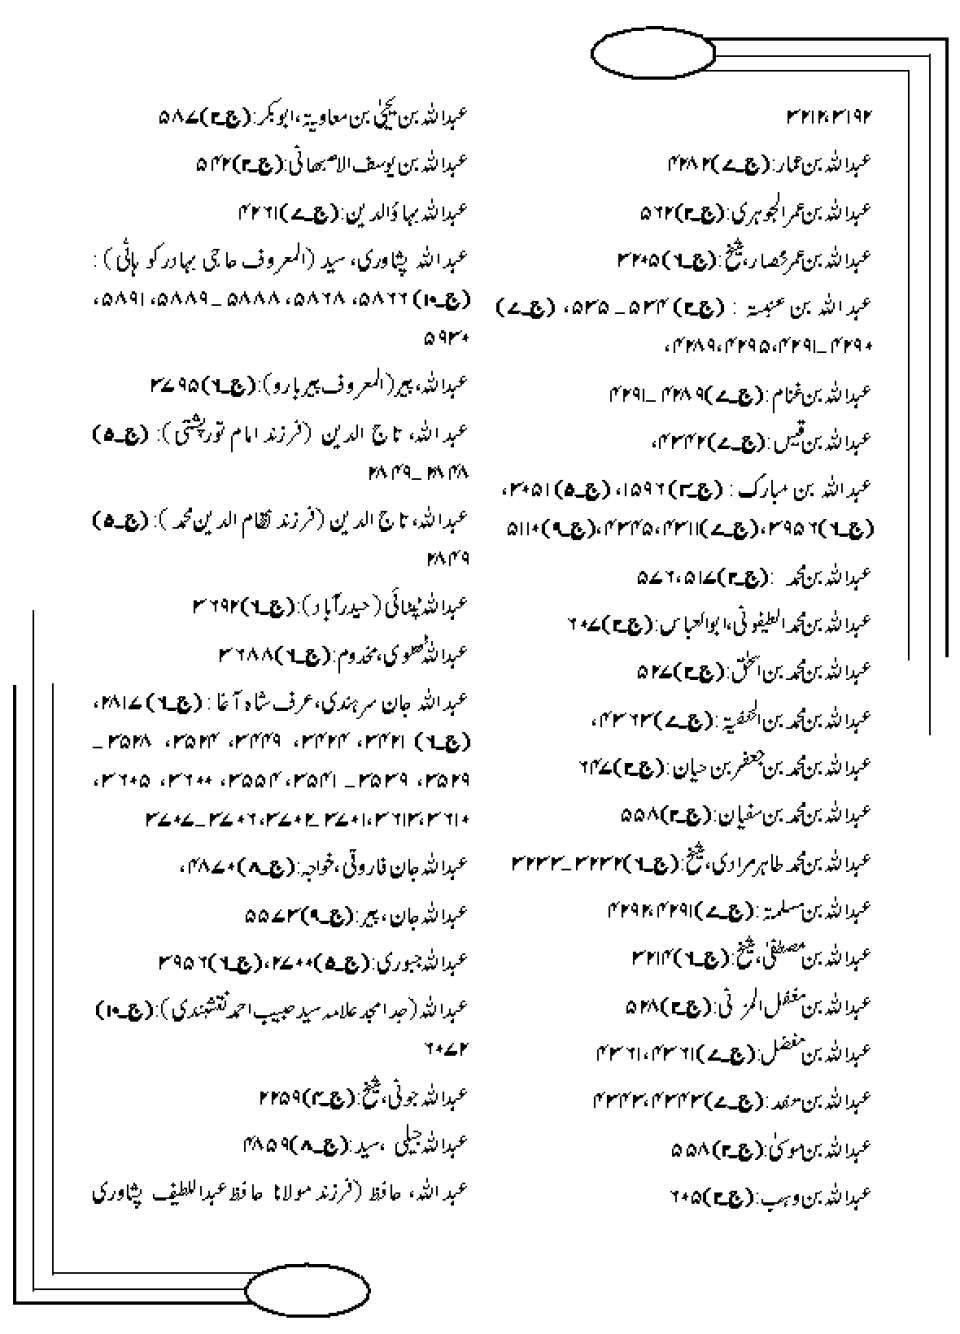 ۳۲۱۲،۳۱۹۲
عبداللہ بن عمار:(ج۔۷)۴۲۸۲
عبداللہ بن عمر الجوہری:(ج۔۲)۵۶۲
عبداللہ بن عمر خصار، شیخ:(ج۔۶)۳۲۰۵
عبداللہ بن عنبسۃ : (ج۔۲)۵۳۴۔۵۳۵، (ج۔۷)
۴۲۹۰۔۴۲۹۱،۴۲۹۵،۴۲۸۹،
عبداللہ بن غنام:(ج۔۷)۴۲۸۹۔۴۲۹۱
عبداللہ بن قیس:(ج۔۷)۴۳۴۲،
عبداللہ بن مبارک : (ج۔۳)۱۵۹۶، (ج۔۵)۳۰۵۱،
(ج۔۶)۳۹۵۶،(ج۔۷)۴۳۱۱،۴۳۴۵،(ج۔۹)۵۱۱۰
عبداللہ بن محمد :(ج۔۲)۵۱۷،۵۷۶
عبداللہ بن محمد الطیفونی، ابوالعباس:(ج۔۲)۶۰۷
عبداللہ بن محمد بن اسحٰق:(ج۔۲)۵۲۷
عبداللہ بن محمد بن الحنفیۃ:(ج۔۷)۴۳۶۳،
عبداللہ بن محمد بن جعفر بن حیان:(ج۔۲)۶۴۷
عبداللہ بن محمد بن سفیان:(ج۔۲)۵۵۸
عبداللہ بن محمد طاہر مرادی، شیخ:(ج۔۶)۳۲۳۲۔۳۲۳۳
عبداللہ بن مسلمۃ:(ج۔۷)۴۲۹۱،۴۲۹۲
عبداللہ بن مصطفیٰ، شیخ:(ج۔۶)۳۲۱۴
عبداللہ بن مغفل المزنی:(ج۔۲)۵۲۸
عبداللہ بن مفضل:(ج۔۷)۴۳۶۱،۴۳۶۱
عبداللہ بن :(ج۔۷)۴۳۴۳،۴۳۴۳
عبداللہ بن موسیٰ:(ج۔۲)۵۵۸
عبداللہ بن وہب:(ج۔۲)۶۰۵
عبداللہ بن یحییٰ بن معاویۃ، ابوبکر:(ج۔۲)۵۸۷
عبداللہ بن یوسف الاصبہانی:(ج۔۲)۵۴۲
عبداللہ بہاؤالدین:(ج۔۷)۴۲۶۱
عبداللہ پشاوری، سید (المعروف حاجی بہادر کوہاٹی):
(ج۔۱۰)۵۸۶۶، ۵۸۶۸، ۵۸۸۸ ۔۵۸۸۹، ۵۸۹۱،
۵۹۳۰
عبداللہ، پیر(المعروف پیر بارو):(ج۔۶)۳۷۹۵
عبداللہ، تاج الدین (فرزند امام تورپشتی): (ج۔۵)
۲۸۴۸۔۲۸۴۹
عبداللہ، تاج الدین (فرزند نظام الدین محمد): (ج۔۵)
۲۸۴۹
عبداللہ پٹھائی (حیدرآباد):(ج۔۶)۳۶۹۲
عبداللہ ٹھٹھوی، مخدوم:(ج۔۶)۳۶۸۸
عبداللہ جان سرہندی، عرف شاہ آغا: (ج۔۶)۲۸۱۷،
(ج۔۶) ۳۴۲۱، ۳۴۲۴، ۳۴۴۹، ۳۵۲۴، ۳۵۲۸۔
۳۵۲۹، ۳۵۳۹۔۳۵۴۱، ۳۵۵۴، ۳۶۰۰، ۳۶۰۵،
۳۶۱۰،۳۶۱۳،۳۷۰۱۔۳۷۰۲،۳۷۰۶۔۳۷۰۷
عبداللہ جان فاروقی، خواجہ:(ج۔۸)۴۸۷۰،
عبداللہ جان، پیر:(ج۔۹)۵۵۷۳
عبداللہ جبوری:(ج۔۵)۲۷۰۰،(ج۔۶)۳۹۵۶
عبداللہ (جدامجد علامہ سید حبیب احمد نقشبندی):(ج۔۱۰)
۶۰۷۲
عبداللہ جونی، شیخ:(ج۔۴)۲۲۵۹
عبداللہ جیلی ، سید:(ج۔۸)۴۸۵۹
عبداللہ، حافظ (فرزند مولانا حافظ عبداللطیف پشاوری